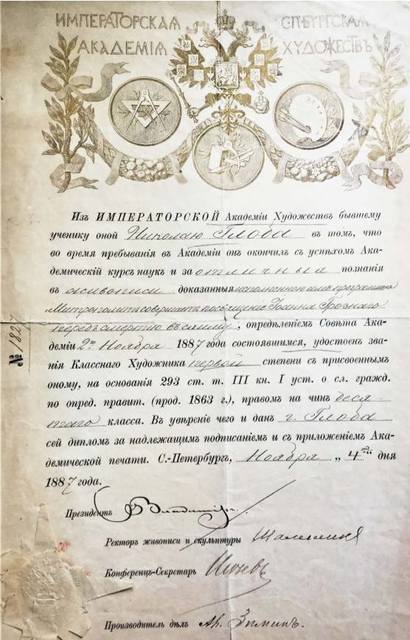 ИМПЕРАТОРСКАЯ С.П.БУРГСКАЯ
АКАДЕМІЯ ХУДОЖЕСТВЪ
Изъ ИМПЕРАТОРСКОЙ Академіи Художествъ бывшему
ученику оной Николаю Глоба въ томъ, что
во время пребыванія въ Академіи онъ окончилъ съ успѣхомъ Ака-
демическій курсъ наукъ и за отличныя познанія
въ живописи доказанныя исполненною имъ программою
Митрополитъ совершаетъ посхищеніе Іоанна Грознаго
передъ смертію въ схиму, опредѣленіемъ Совѣта Ака-
деміи 2го Ноября 1887 года состоявшимся, удостоенъ зва-
нія Класснаго Художника первой степени съ присвоеннымъ
оному, на основаніи 293 ст. т. III кн. I уст. о сл. гражд.
по опред. правит. (прод. 1863 г.), правомъ на чинъ деся
таго класса. Въ увѣреніе чего и данъ г. Глоба
сей дипломъ за надлежащимъ подписаніемъ и съ приложеніемъ Ака-
демической печати. С.-Петербургъ, Ноября „4го дня
1887 года.
№ 1827
Президентъ Владиміръ
Ректоръ живописи и скульптуры Шамшинъ
Конференцъ-Секретарь Исѣевъ
Производитель дѣлъ Ар. Зиминъ.